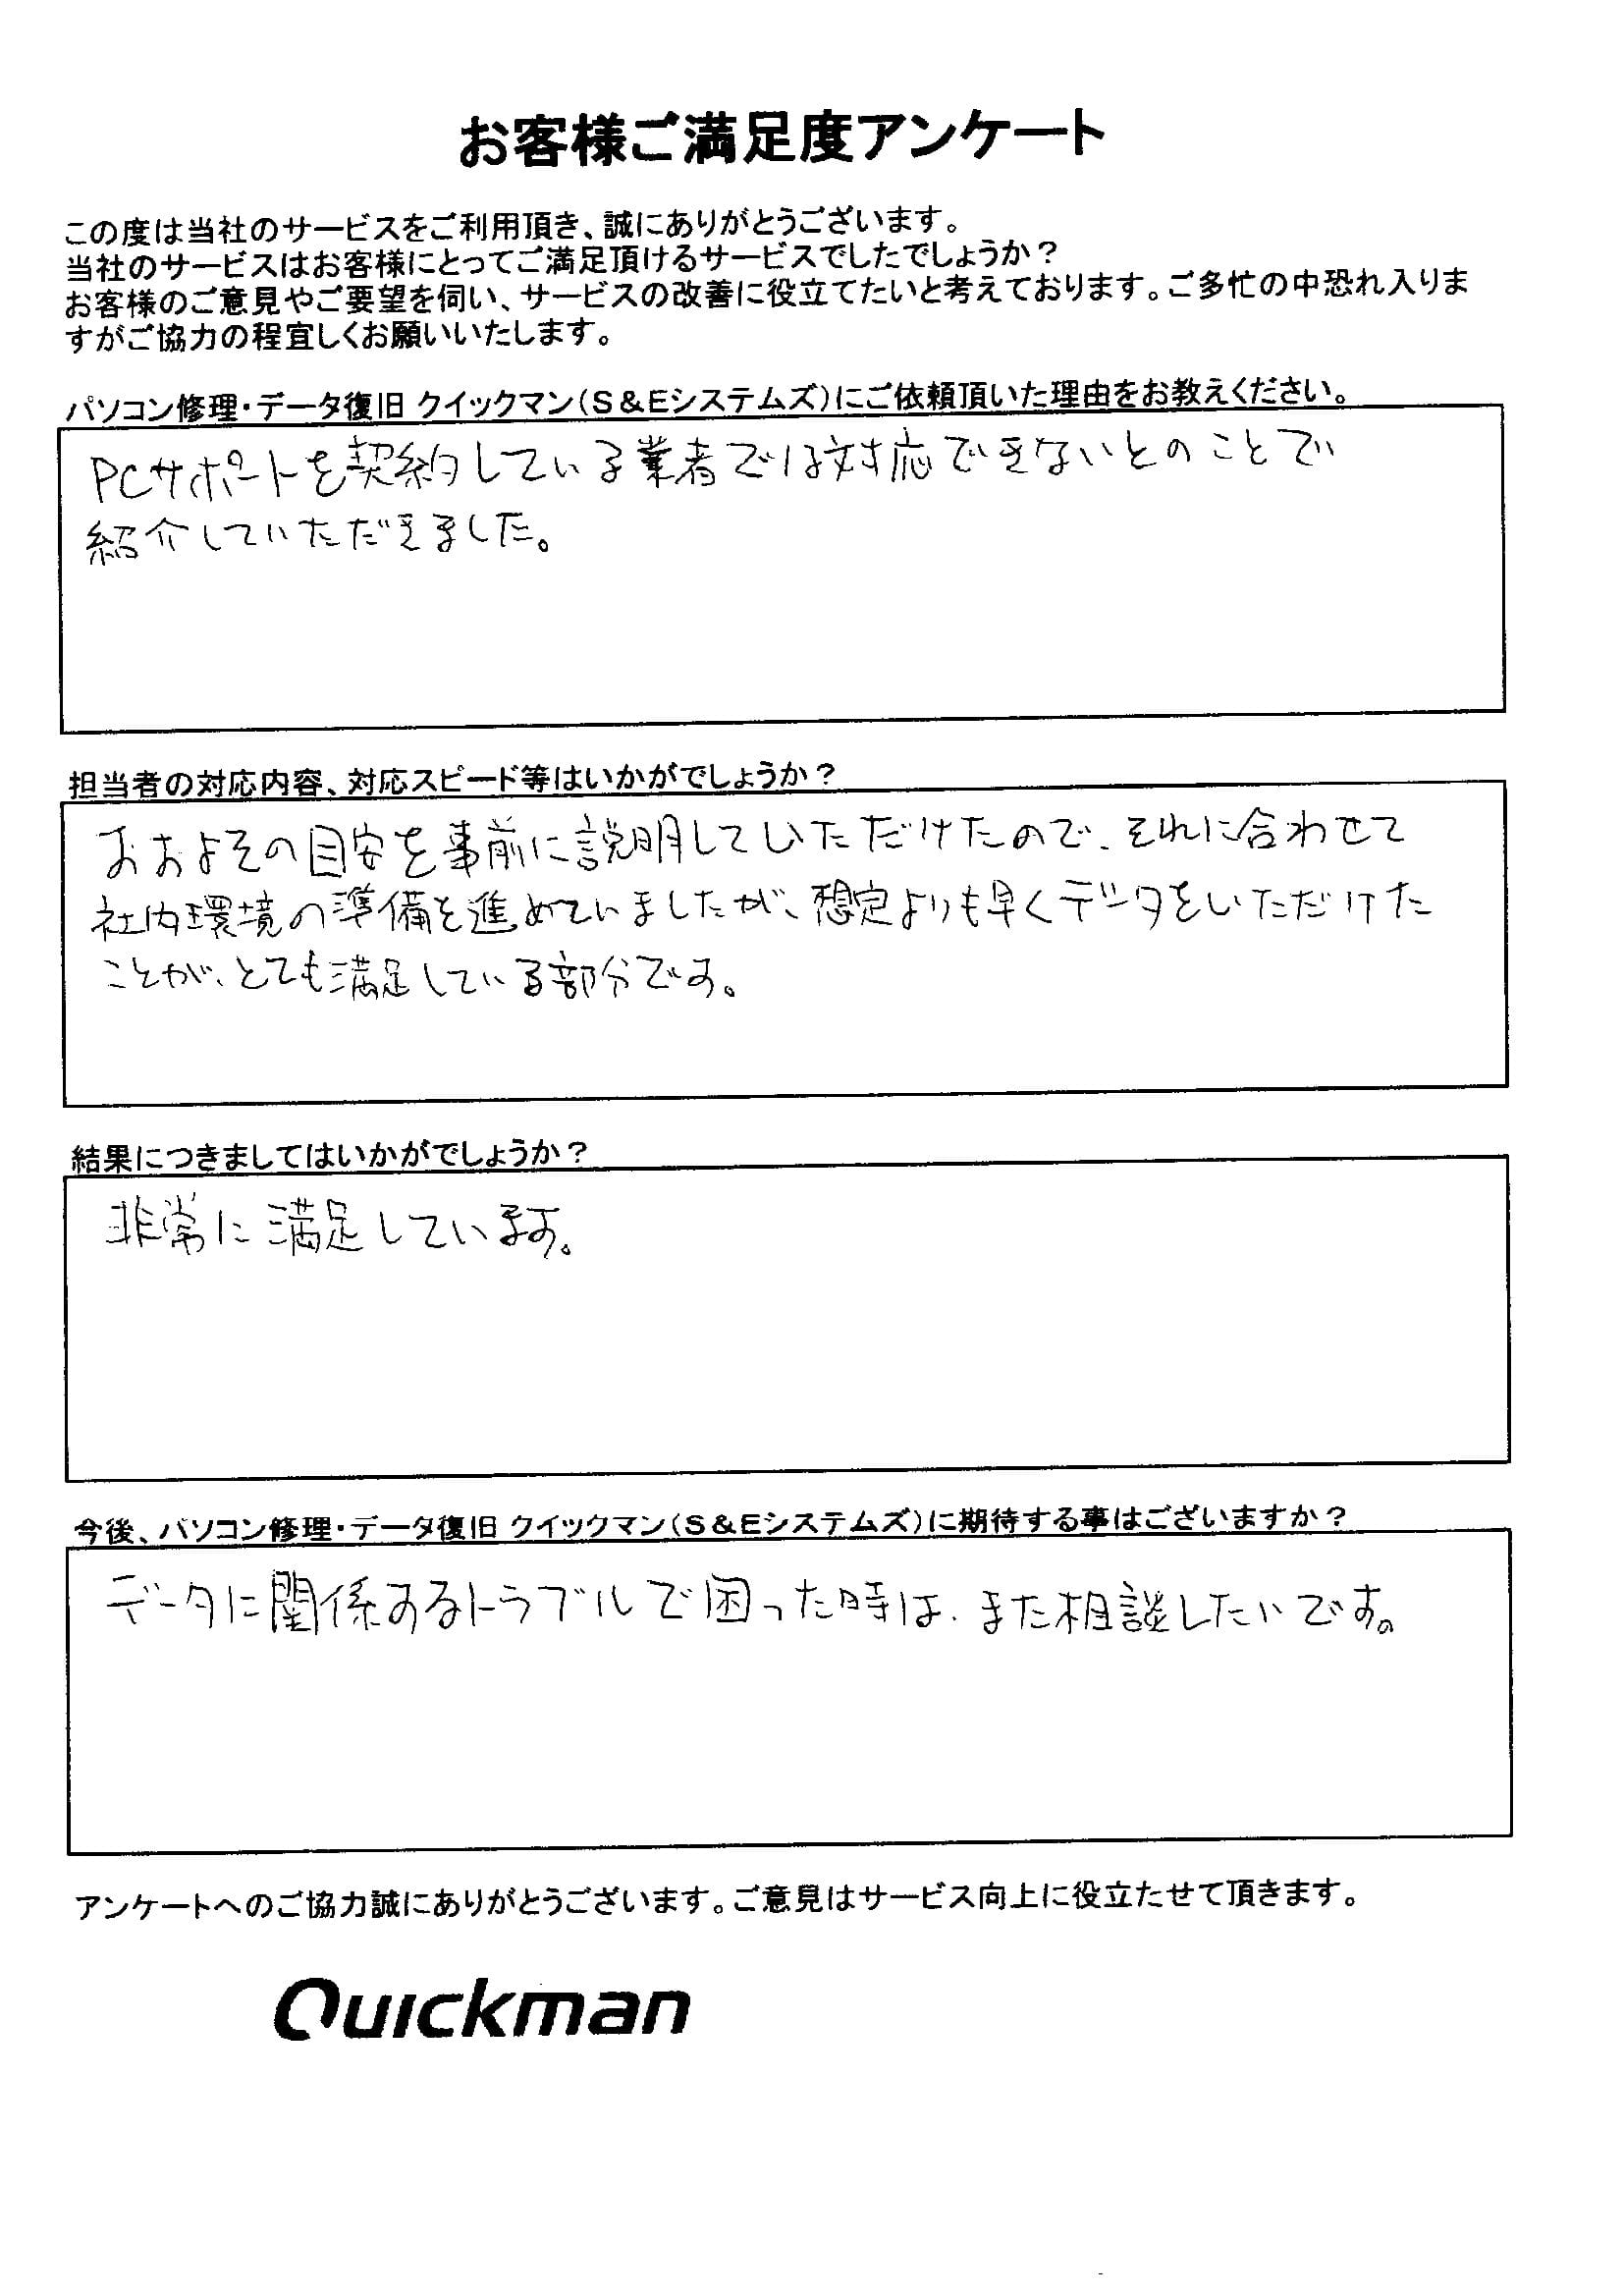 お客様ご満足度アンケート
この度は当社のサービスをご利用頂き、誠にありがとうございます。
当社のサービスはお客様にとってご満足頂けるサービスでしたでしょうか？
お客様のご意見やご要望を伺い、サービスの改善に役立てたいと考えております。ご多忙の中恐れ入りま
すがご協力の程宜しくお願いいたします。
パソコン修理・データ復旧 クイックマン（S＆Eシステムズ）にご依頼頂いた理由をお教えください。
PCサポートを契約している業者では対応できないとのことで
紹介していただきました。
担当者の対応内容、対応スピード等はいかがでしょうか？
おおよその目安を事前に説明していただけたので、それに合わせて
社内環境の準備を進めていましたが、想定よりも早くデータをいただけた
ことが、とても満足している部分です。
結果につきましてはいかがでしょうか？
非常に満足しています。
今後、パソコン修理・データ復旧 クイックマン（S＆Eシステムズ）に期待する事はございますか？
データに関係するトラブルで困った時は、また相談したいです。
アンケートへのご協力誠にありがとうございます。ご意見はサービス向上に役立たせて頂きます。
Quickman